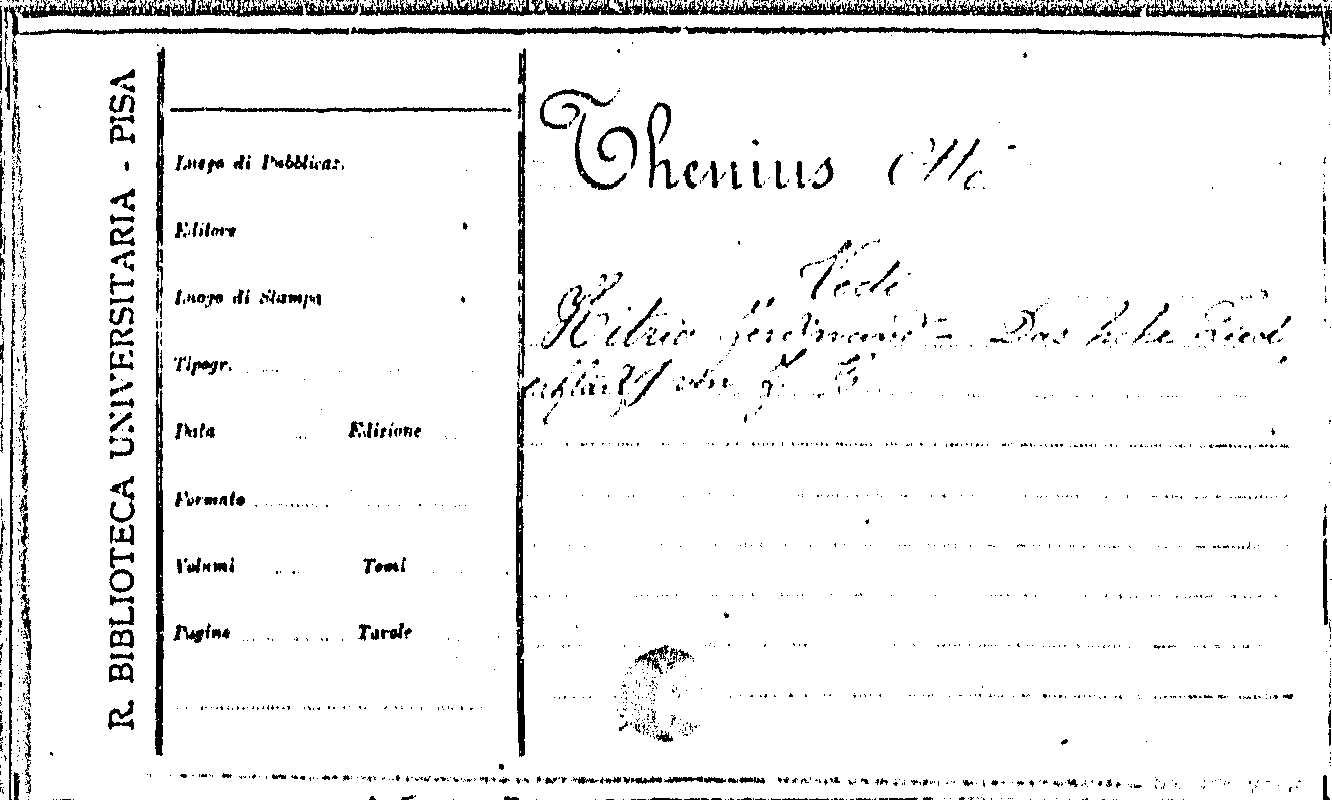 R. BIBLIOTECA UNIVERSITARIA - PISA
Luogo di Pubblicaz.
Editore
Luogo di Stampa
Tipogr.
Data Edizione
Formato
Volumi Tomi
Pagine Tavole
Thenius Otto
Vedi
Hitzig Ferdinand = Das hohe Lied
erklärt von F. H.